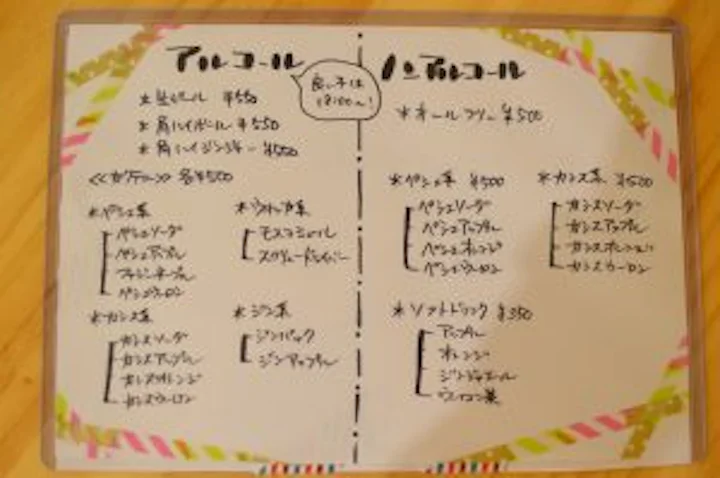 アルコール
良い子は
18:00〜!
*生ビール ¥550
*角ハイボール ¥550
*角ハイジンジャー ¥550
<<カクテル>> 各¥500
*ペシェ系
ペシェソーダ
ペシェアップル
ファジーネーブル
ペシェウーロン
*カシス系
カシスソーダ
カシスアップル
カシスオレンジ
カシスウーロン
*ウォッカ系
モスコミュール
スクリュードライバー
*ジン系
ジンバック
ジンアップル
ノンアルコール
*オールフリー ¥500
*ペシェ系 ¥500
ペシェソーダ
ペシェアップル
ペシェオレンジ
ペシェウーロン
*カシス系 ¥500
カシスソーダ
カシスアップル
カシスオレンジ
カシスウーロン
*ソフトドリンク ¥350
アップル
オレンジ
ジンジャエール
ウーロン茶